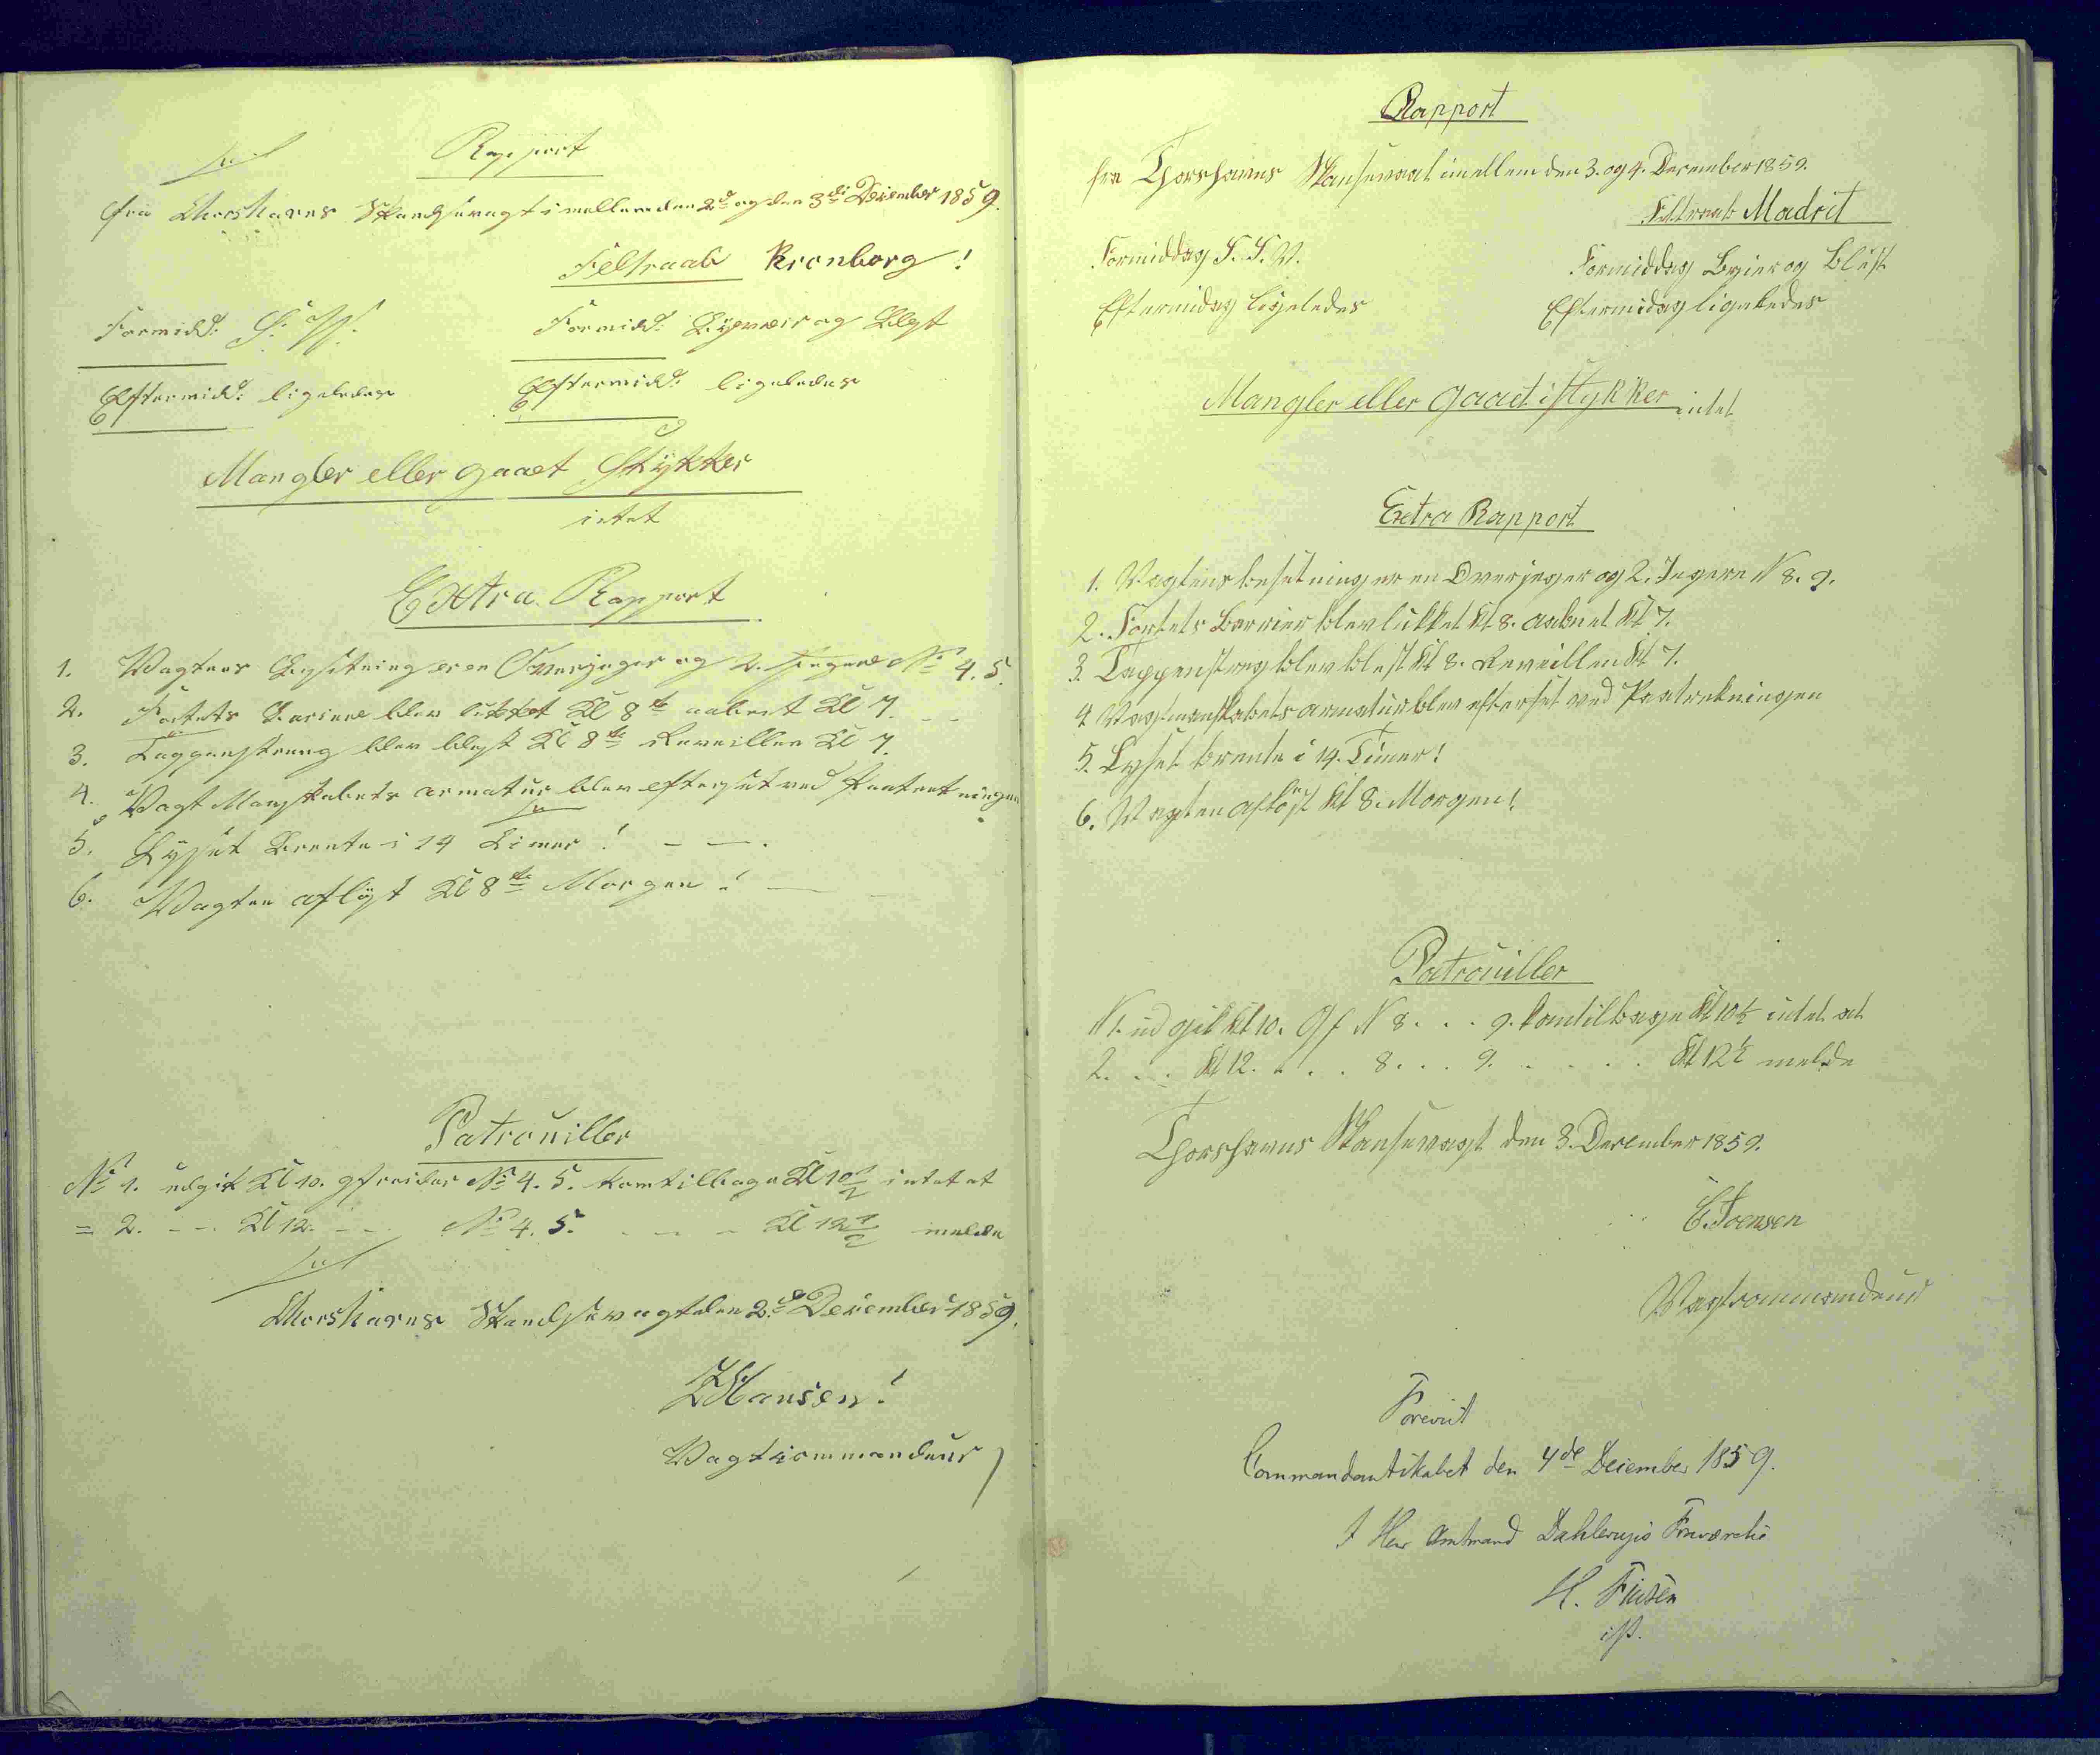 Rapport
fra Thorshavns Skandsevagt imellem den 2d og den 3di December 1859.
Feltraab Kronborg!
Formidd: S. W. Formidd: Byeveir og Blest
Eftermidd: ligeledes Eftermidd: ligeledes
Mangler eller gaaet Stykker
intet
Extra Rapport
1. Vagtens Besetning er en Overjeger og 2. Jegere No 4. 5.
2. Fortets Bariere blev lukket Kl 8te aabnet Kl 7.
3. Tappenstreng blev blest Kl 8te Reveillen Kl 7.
4. Vagt Manskabets armatur blev efterset ved Paatrekningen
5. Lyset Brente i 14 Timer!
6. Vagten afløst Kl 8te Morgen!
Patrouiller
No 1. udgik Kl 10. gfreider No 4. 5. kom tilbage Kl 10 1/2 intet at
= 2. Kl 12. No 4. 5. Kl 12 1/2 melde
Thorshavns Skandsevagt den 2d December 1859.
Hansen!
Vagtcommandeur
Rapport
fra Thorshavns Skansevagt imellem den 3. og 4. December 1859.
Feltraab Madrit
Formiddag S. S. V. Formiddag Byier og Blest
Eftermidag ligeledes Eftermidag ligeledes
Mangler eller gaaet i stykker intet
Extra Rapport
1. Vagtens besetning er en Overjeger og 2. Jegere N 8. 9.
2. Fortets Barrier blev lukket Kl 8. aabnet Kl 7.
3. Tappenstreg blev blest Kl 8. Reveillen Kl 7.
4 Vagtmanskabets armatur blev efterset ved Paatrekningen
5. Lyset brente i 14. Timer!
6. Vagten afløst Kl 8. Morgen!
Patrouiller
N 1. udgik Kl 10. Gf N 8... 9. kom tilbage Kl 10 1/2 intet at
2. ... Kl 12. ... 8... 9. .... Kl 12 1/2 melde
Thorshavns Skansevagt den 3. December 1859.
Joensen
Vagtcommandeur
Forevist
Commandantskabet den 4de December 1859.
I Herr Amtmand Dahlerups Fraværelse
H.